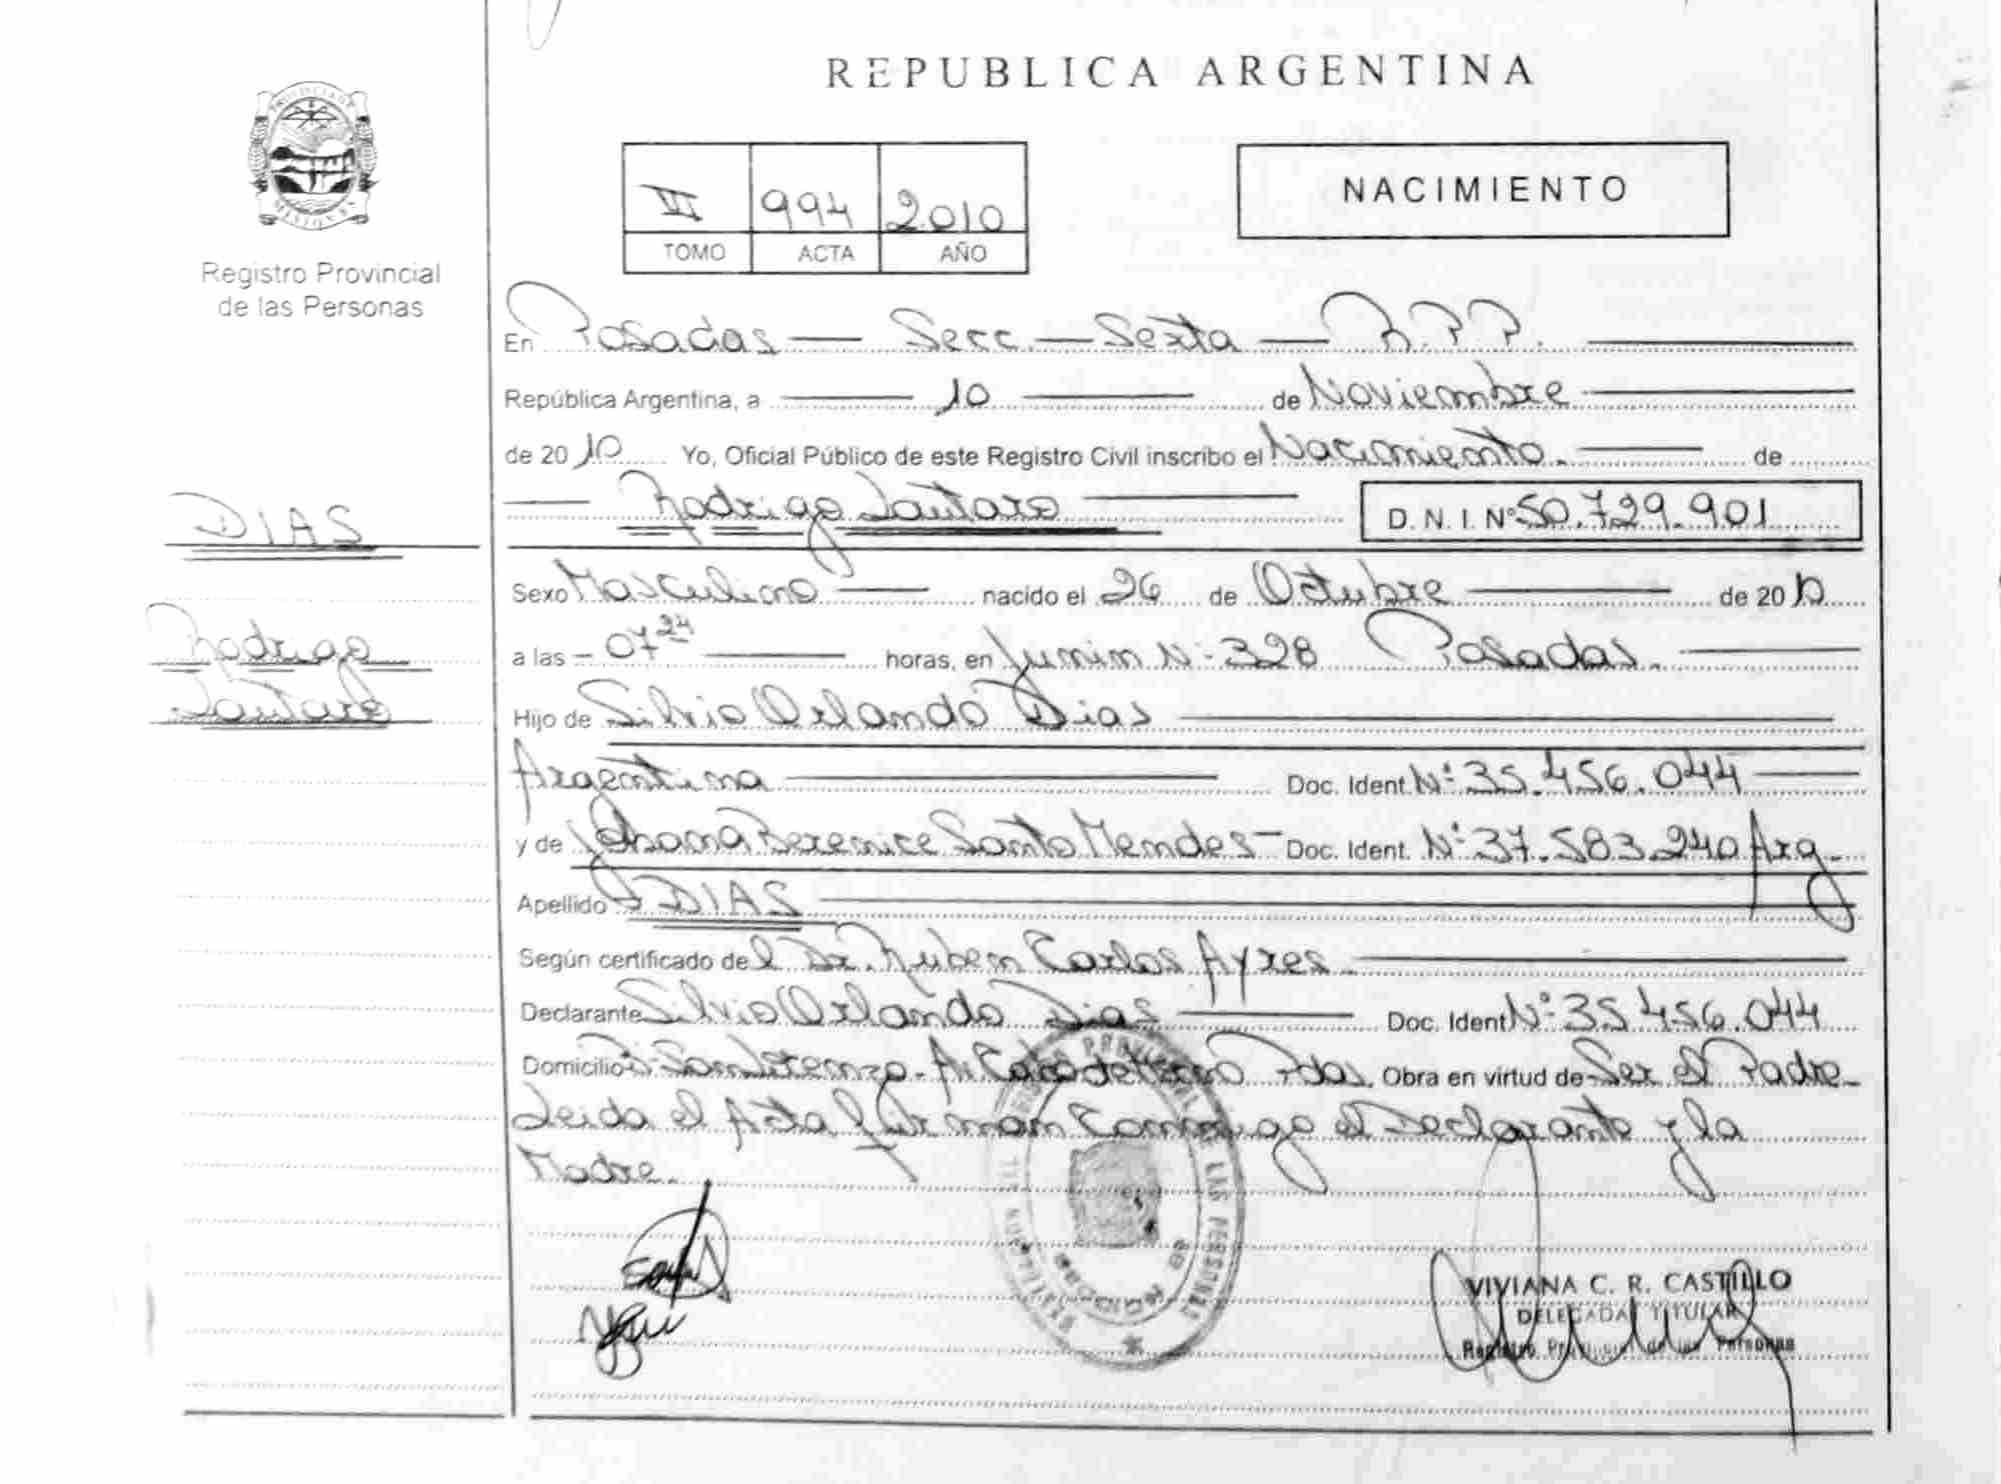 REPUBLICA ARGENTINA
PROVINCIA DE MISIONES
Registro Provincial
de las Personas
VI 994 2010
TOMO ACTA AÑO
NACIMIENTO
En Posadas — Secc. — Sexta — R.P.P.
República Argentina, a 10 de Noviembre
de 2010 Yo, Oficial Público de este Registro Civil inscribo el Nacimiento. de
DIAS
Rodrigo Lautaro
Rodrigo Lautaro D.N.I. Nº 50.729.901
Sexo Masculino nacido el 26 de Octubre de 2010
a las 07 24 horas, en Junin Nº 328 Posadas.
Hijo de Silvio Orlando Dias
Argentina Doc. Ident. Nº 35.456.044
y de Johana Berenice Santo Mendes - Doc. Ident. Nº 37.583.240 Arg.
Apellido DIAS
Según certificado del Dr. Ruben Carlos Ayres
Declarante Silvio Orlando Dias Doc. Ident Nº 35.456.044
Domicilio Pdas. Obra en virtud de Ser el Padre
Leida el Acta firman Conmigo el Declarante y la
Madre.
VIVIANA C. R. CASTILLO
DELEGADA TITULAR
Registro Provincial de las Personas